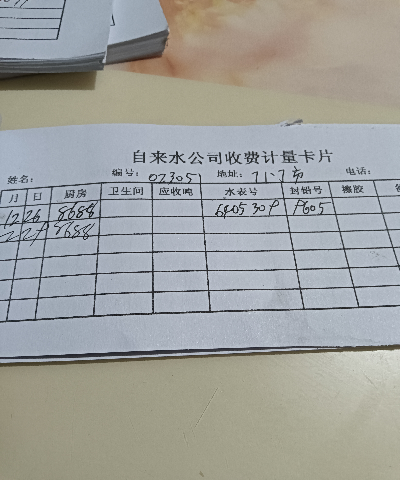 自来水公司收费计量卡片
姓名： 编号：023051 地址：71-7方 电话：
月 日 厨房 卫生间 应收吨 水表号 封铅号 橡胶
12 26 8688 6405309 P605
2 29 8688